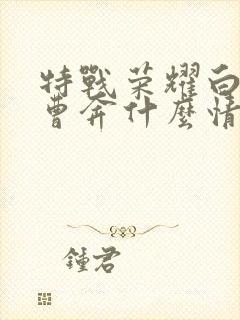 特戰荣耀白
曹奔什麼情
鍾君